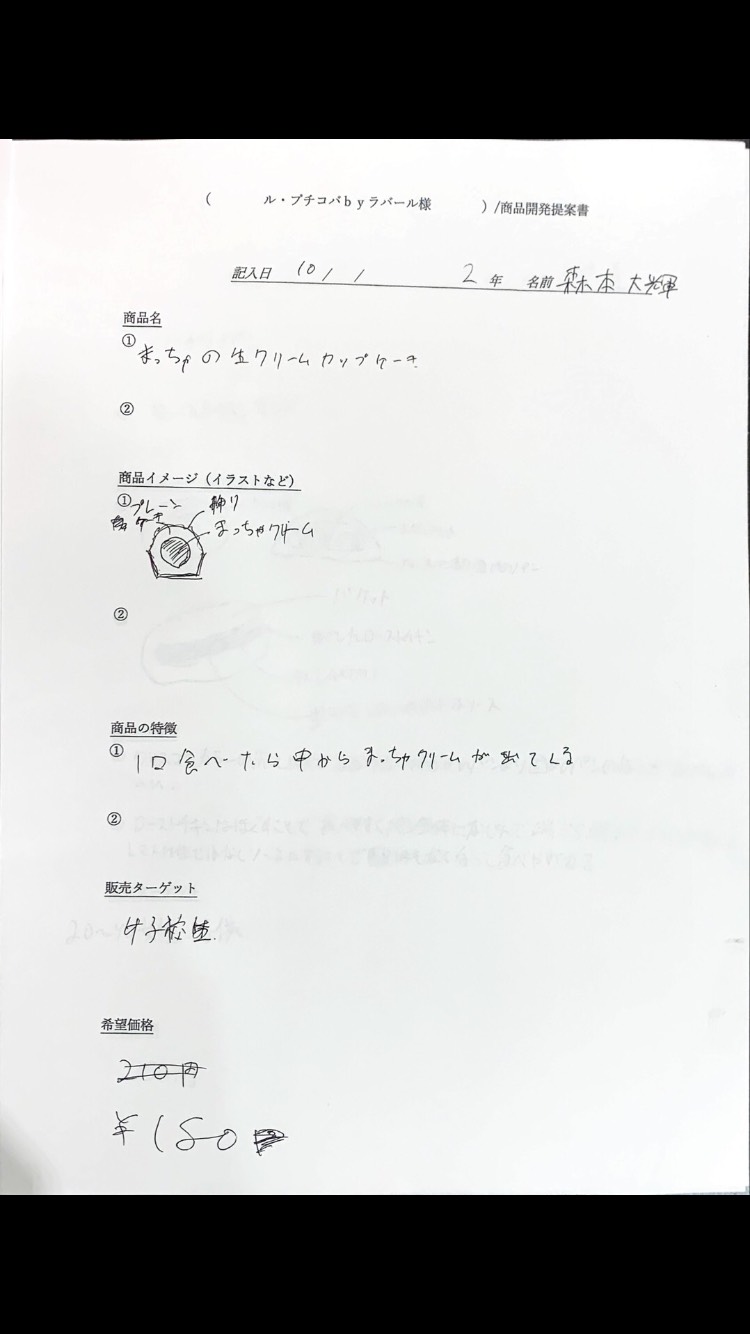 ( ル・プチコパｂｙラバール様 ) /商品開発提案書
記入日 10/1 2年 名前 森本大輝
商品名
① まっちゃの生クリームカップケーキ
②
商品イメージ（イラストなど）
① プレーン 搾り
ケーキ まっちゃクリーム
②
商品の特徴
① 1口食べたら中からまっちゃクリームが出てくる
②
販売ターゲット
女子校生
希望価格
210円
¥180